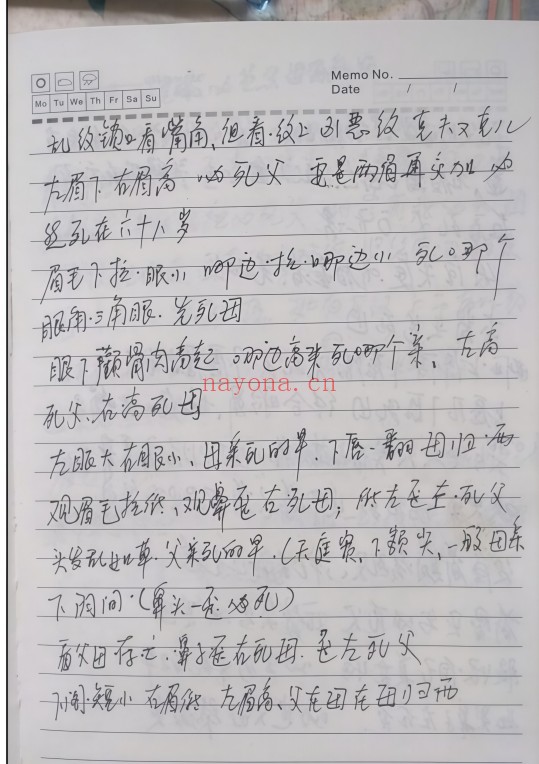 Memo No.
Date / /
Mo Tu We Th Fr Sa Su
乱纹锁口看嘴角、但看·纹上 凶恶纹 克夫又克儿
左眉下 右眉高 必死父 要是两眉再交加 必
死在六十八岁
眉毛下拉·眼小 哪边·拉·哪边小 死哪个
眼角·三角眼·先死母
眼下颧骨肉高起 哪边高来死哪个亲、左高
死父、右高死母
nayona.cn
左眼大右眼小、母亲死的早、下唇一翻母归西
观眉毛拉低、观鼻歪右死母； 歪左·死父
头发乱如草·父亲死的早·(天庭 、下额尖、一般母亲
下阴间·(鼻头一歪必死)
看父母存亡·鼻子歪右死母·歪左死父
短小 右眉低 左眉高、父在母在母归西